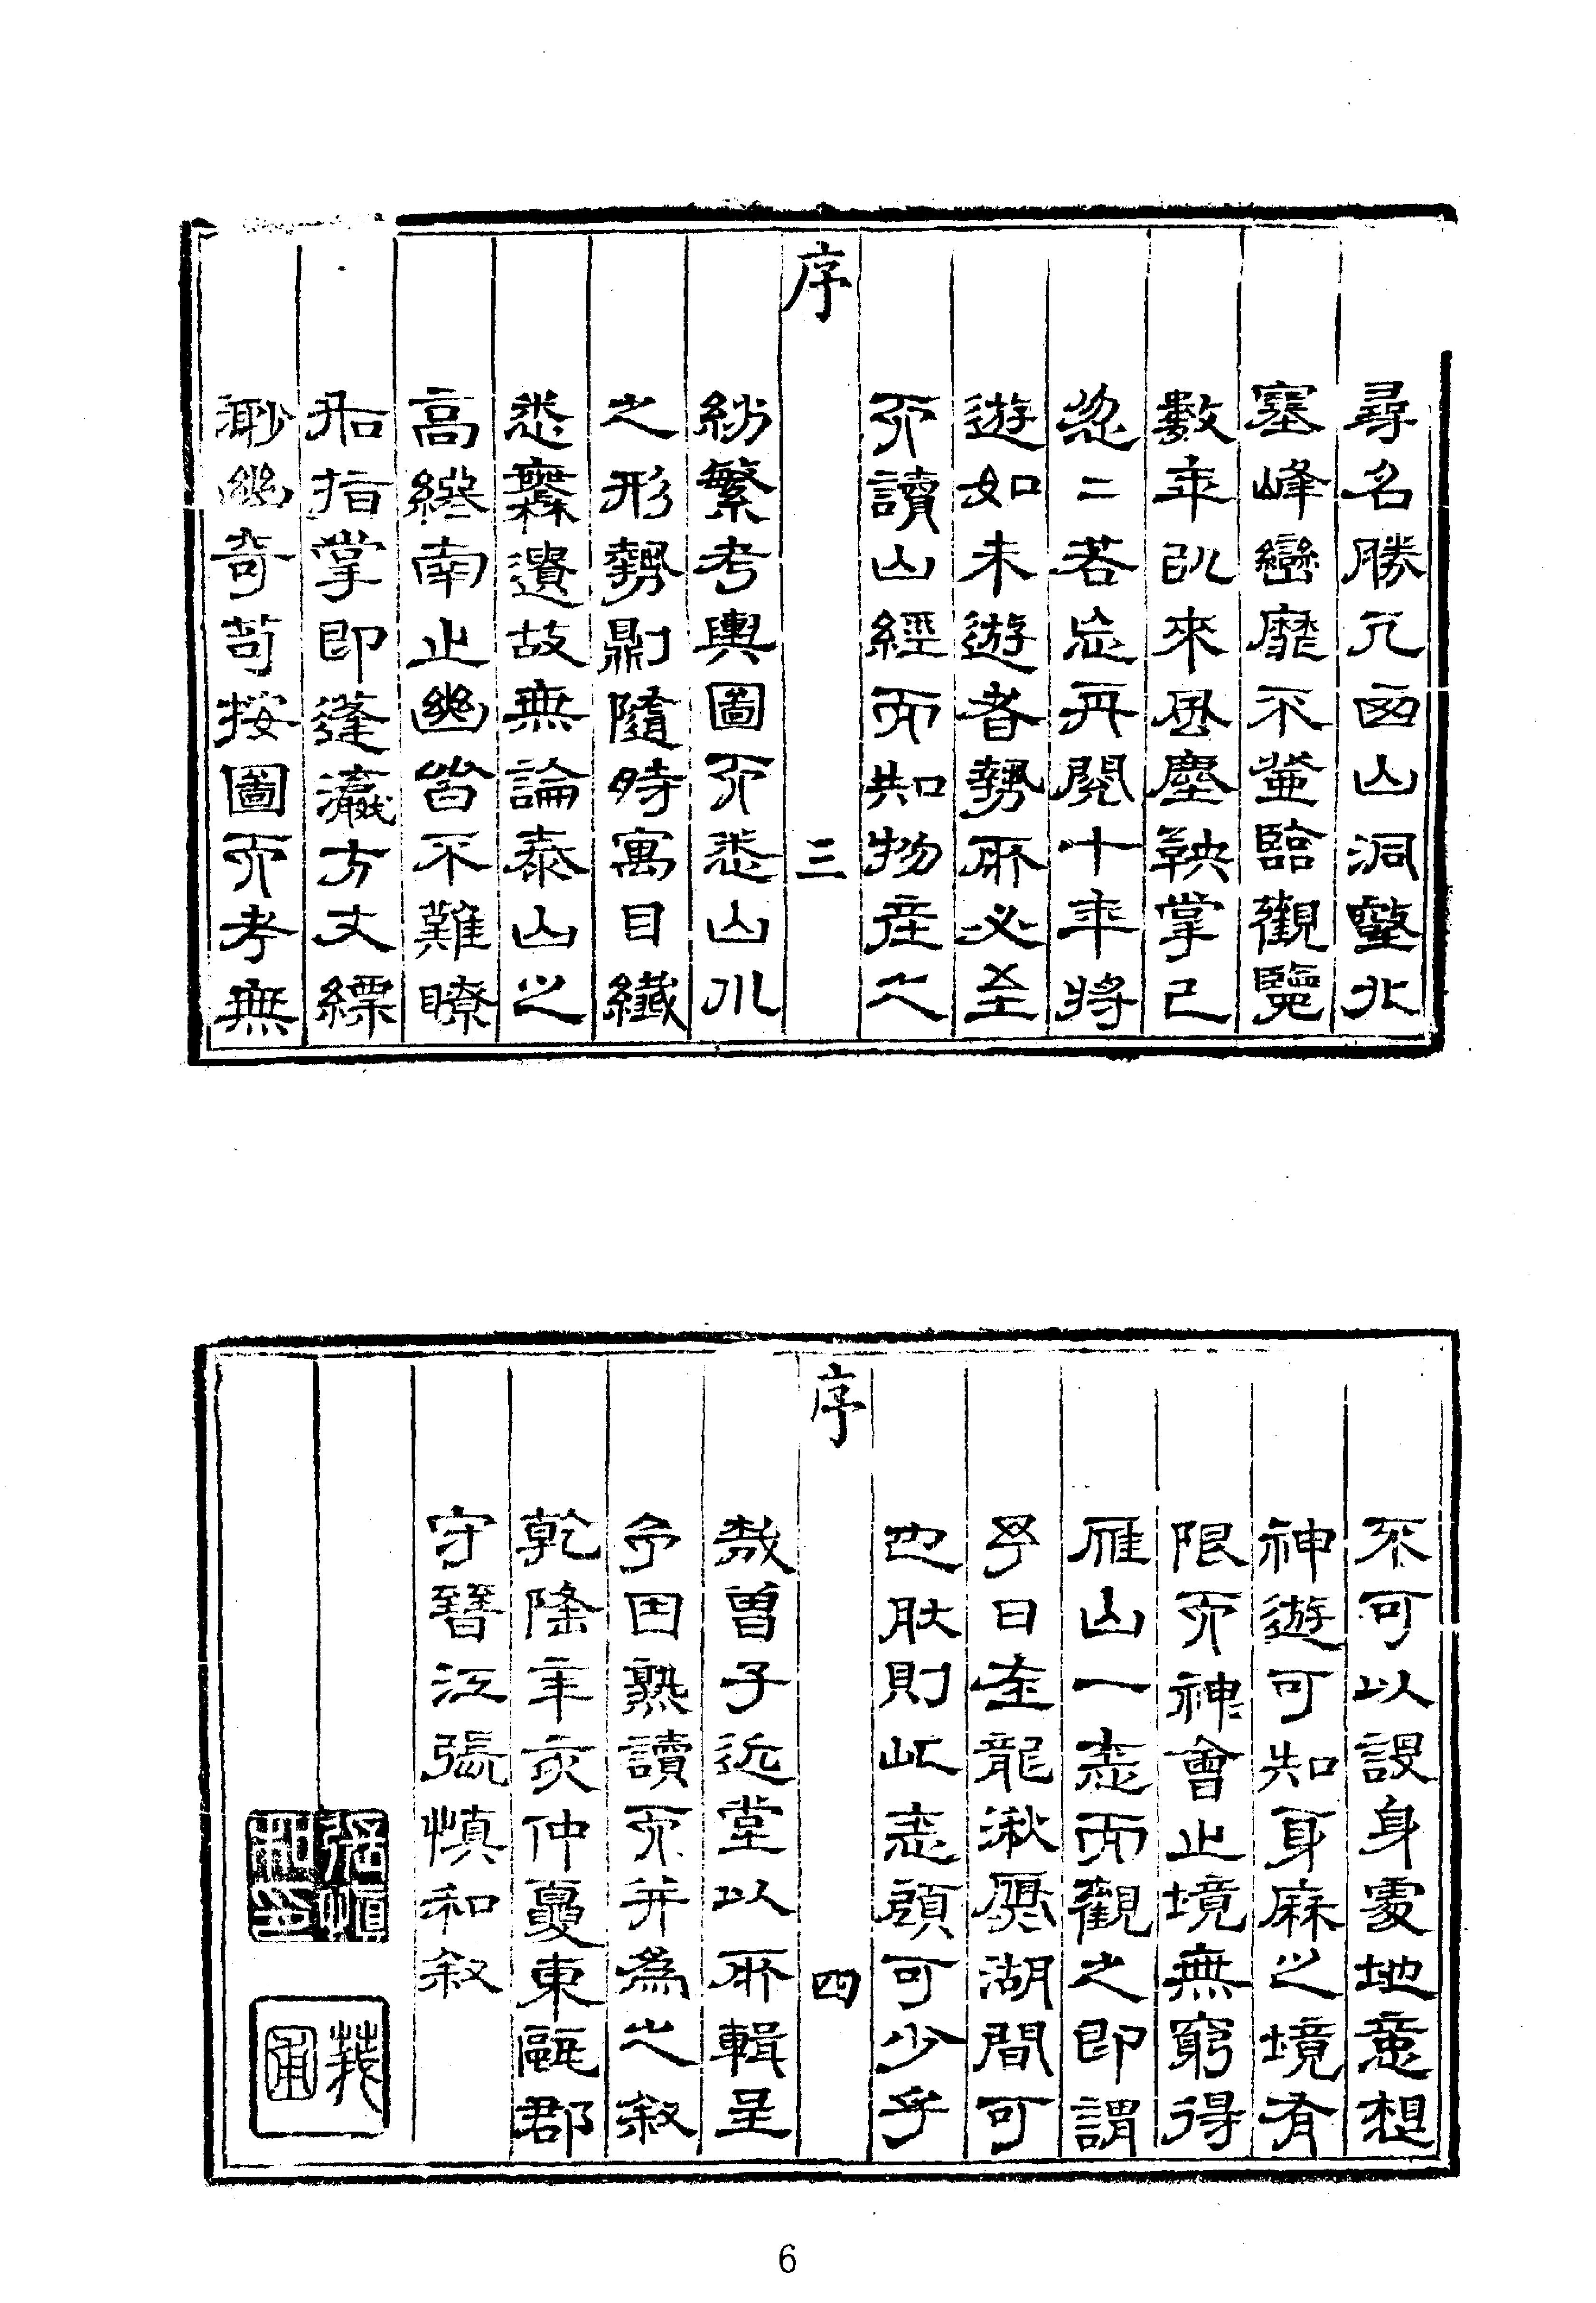 尋名勝凢西山洞壑北
塞峰巒靡不登臨觀覽
數年以來風塵鞅掌已
忽二若忘再閱十年將
遊如未遊者勢所必至
而讀山經而知物產之
序
三
紛繁考輿圖而悉山川
之形勢則隨時寓目纖
悉無遺故無論泰山之
高終南止幽皆不難瞭
如指掌即蓬瀛方丈縹
渺幽奇茍按圖而考無
不可以設身處地意想
神遊可知身麻之境有
限而神會止境無窮得
雁山一志而觀之即謂
予日在龍湫雁湖間可
也肰則此志顧可少乎
序
四
哉曾子近堂以所輯呈
予因熟讀而并為之叙
乾隆辛亥仲夏東甌郡
守晉江張慎和叙
張慎和印
6